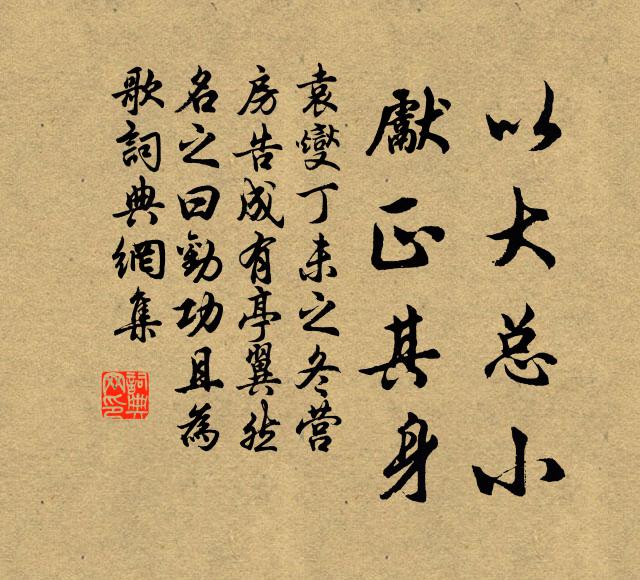 以大总小
献正其身
袁燮丁未之冬营
房告成有亭翼然
名之曰勸功且為
歌詞典網集
詞典
网印